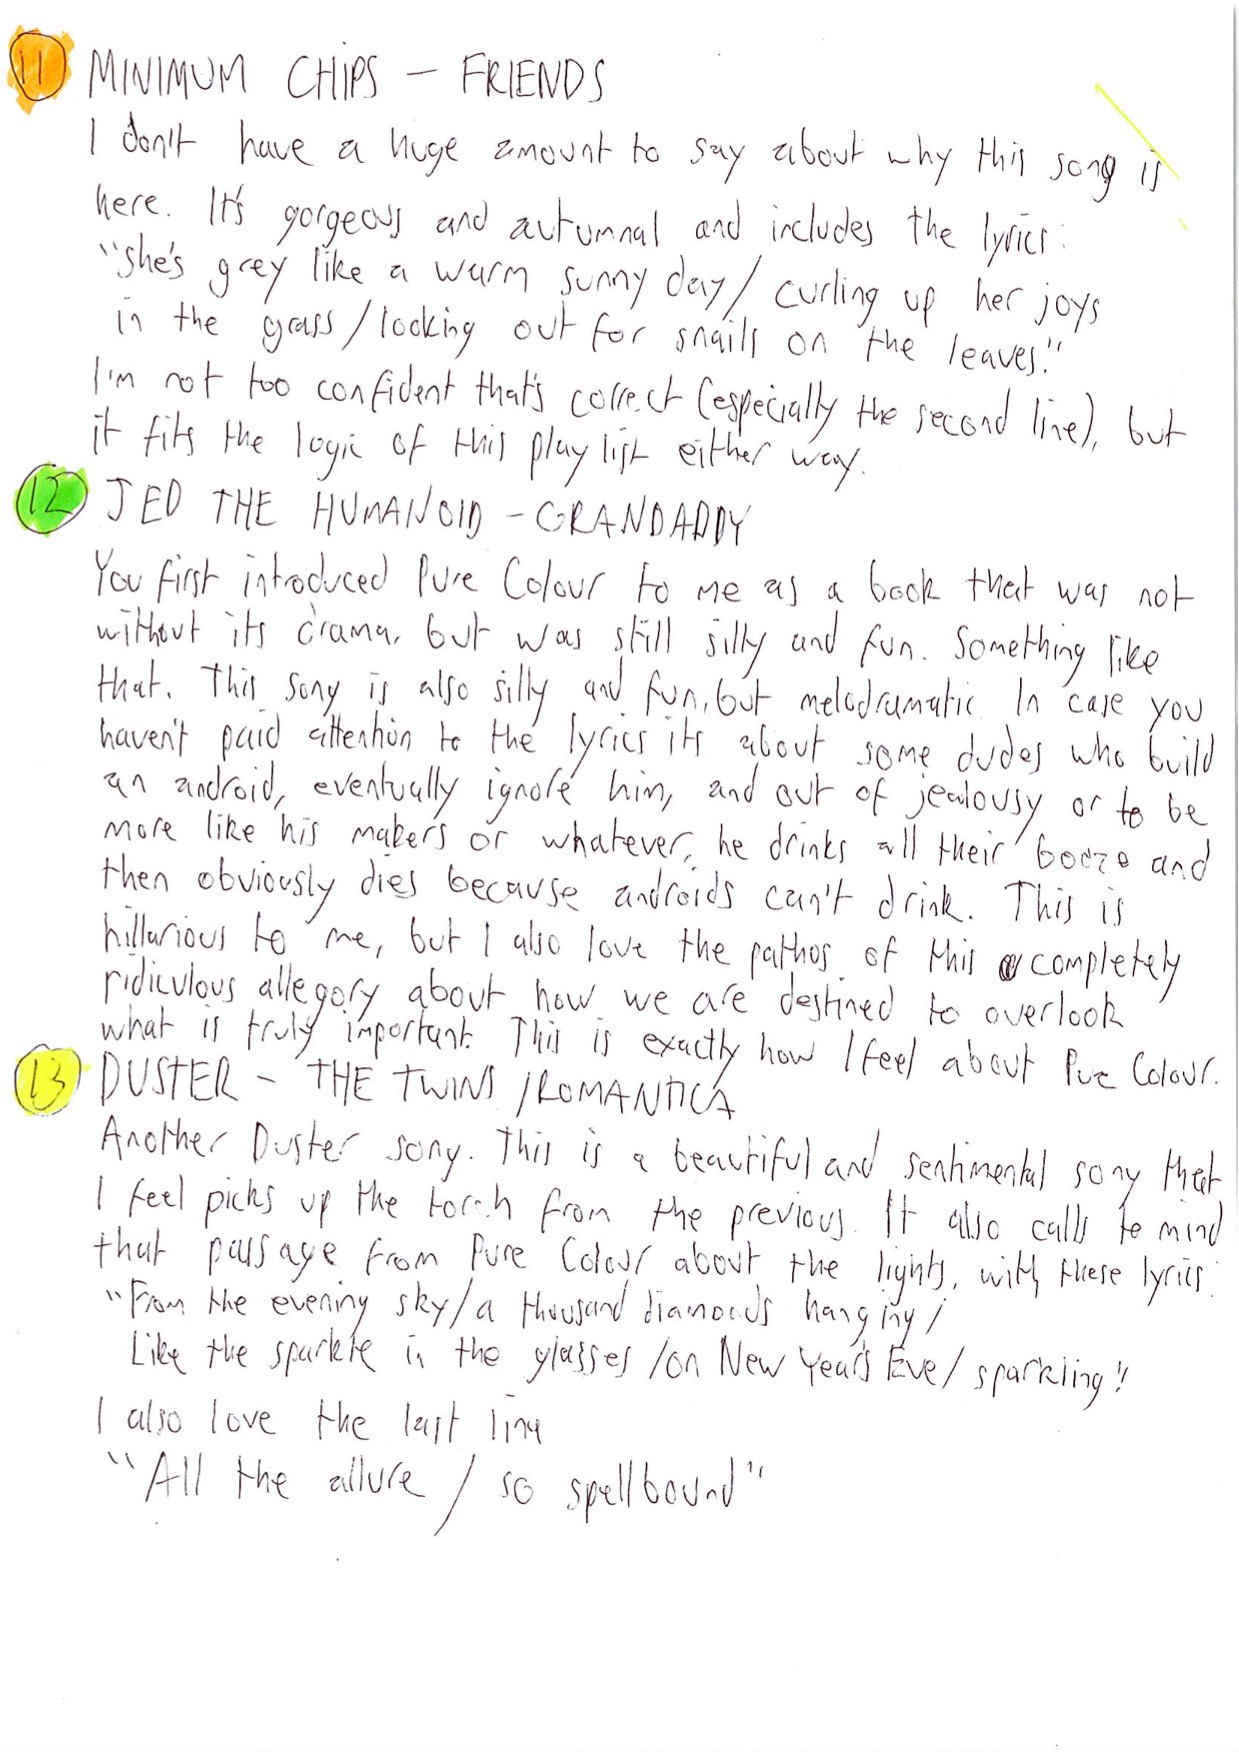 11 MINIMUM CHIPS - FRIENDS
I don't have a huge amount to say about why this song is
here. It's gorgeous and autumnal and includes the lyrics:
"She's grey like a warm sunny day / curling up her joys
in the grass / looking out for snails on the leaves."
I'm not too confident that's correct (especially the second line), but
it fits the logic of this playlist either way.
12 JED THE HUMANOID - GRANDADDY
You first introduced Pure Colour to me as a book that was not
without its drama, but was still silly and fun. Something like
that. This song is also silly and fun, but melodramatic. In case you
haven't paid attention to the lyrics its about some dudes who build
an android, eventually ignore him, and out of jealousy or to be
more like his makers or whatever, he drinks all their booze and
then obviously dies because androids can't drink. This is
hillarious to me, but I also love the pathos of this completely
ridiculous allegory about how we are destined to overlook
what is truly important. This is exactly how I feel about Pure Colour.
13 DUSTER - THE TWINS / ROMANTICA
Another Duster song. This is a beautiful and sentimental song that
I feel picks up the torch from the previous. It also calls to mind
that passage from Pure Colour about the lights, with these lyrics:
"From the evening sky / a thousand diamonds hanging /
Like the sparkle in the glasses / on New Year's Eve / sparkling"
I also love the last line
"All the allure / so spellbound"